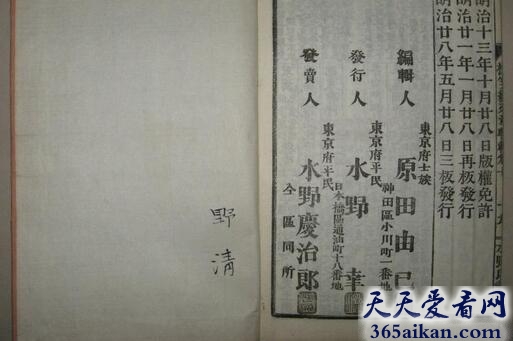 明治十三年十月廿八日版權免許
明治廿一年一月廿八日再板發行
明治廿八年五月廿八日三板發行
東京府士族
神田區小川町一番地
編輯人 原田由己
東京府平民
日本橋區通油町十八番地
發行人 水野幸
東京府平民
仝區同所
發賣人 水野慶治郎
野清
天天爱看网
365aikan.com